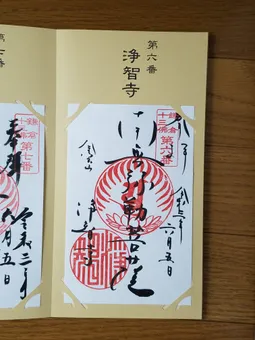 第六番
浄智寺
奉拝
鎌倉
十三佛
第六番
令和三年
六月五日
弥勒菩薩
金宝山
浄智寺
鎌倉
十三佛
第七番
奉拝
令和三年
六月五日